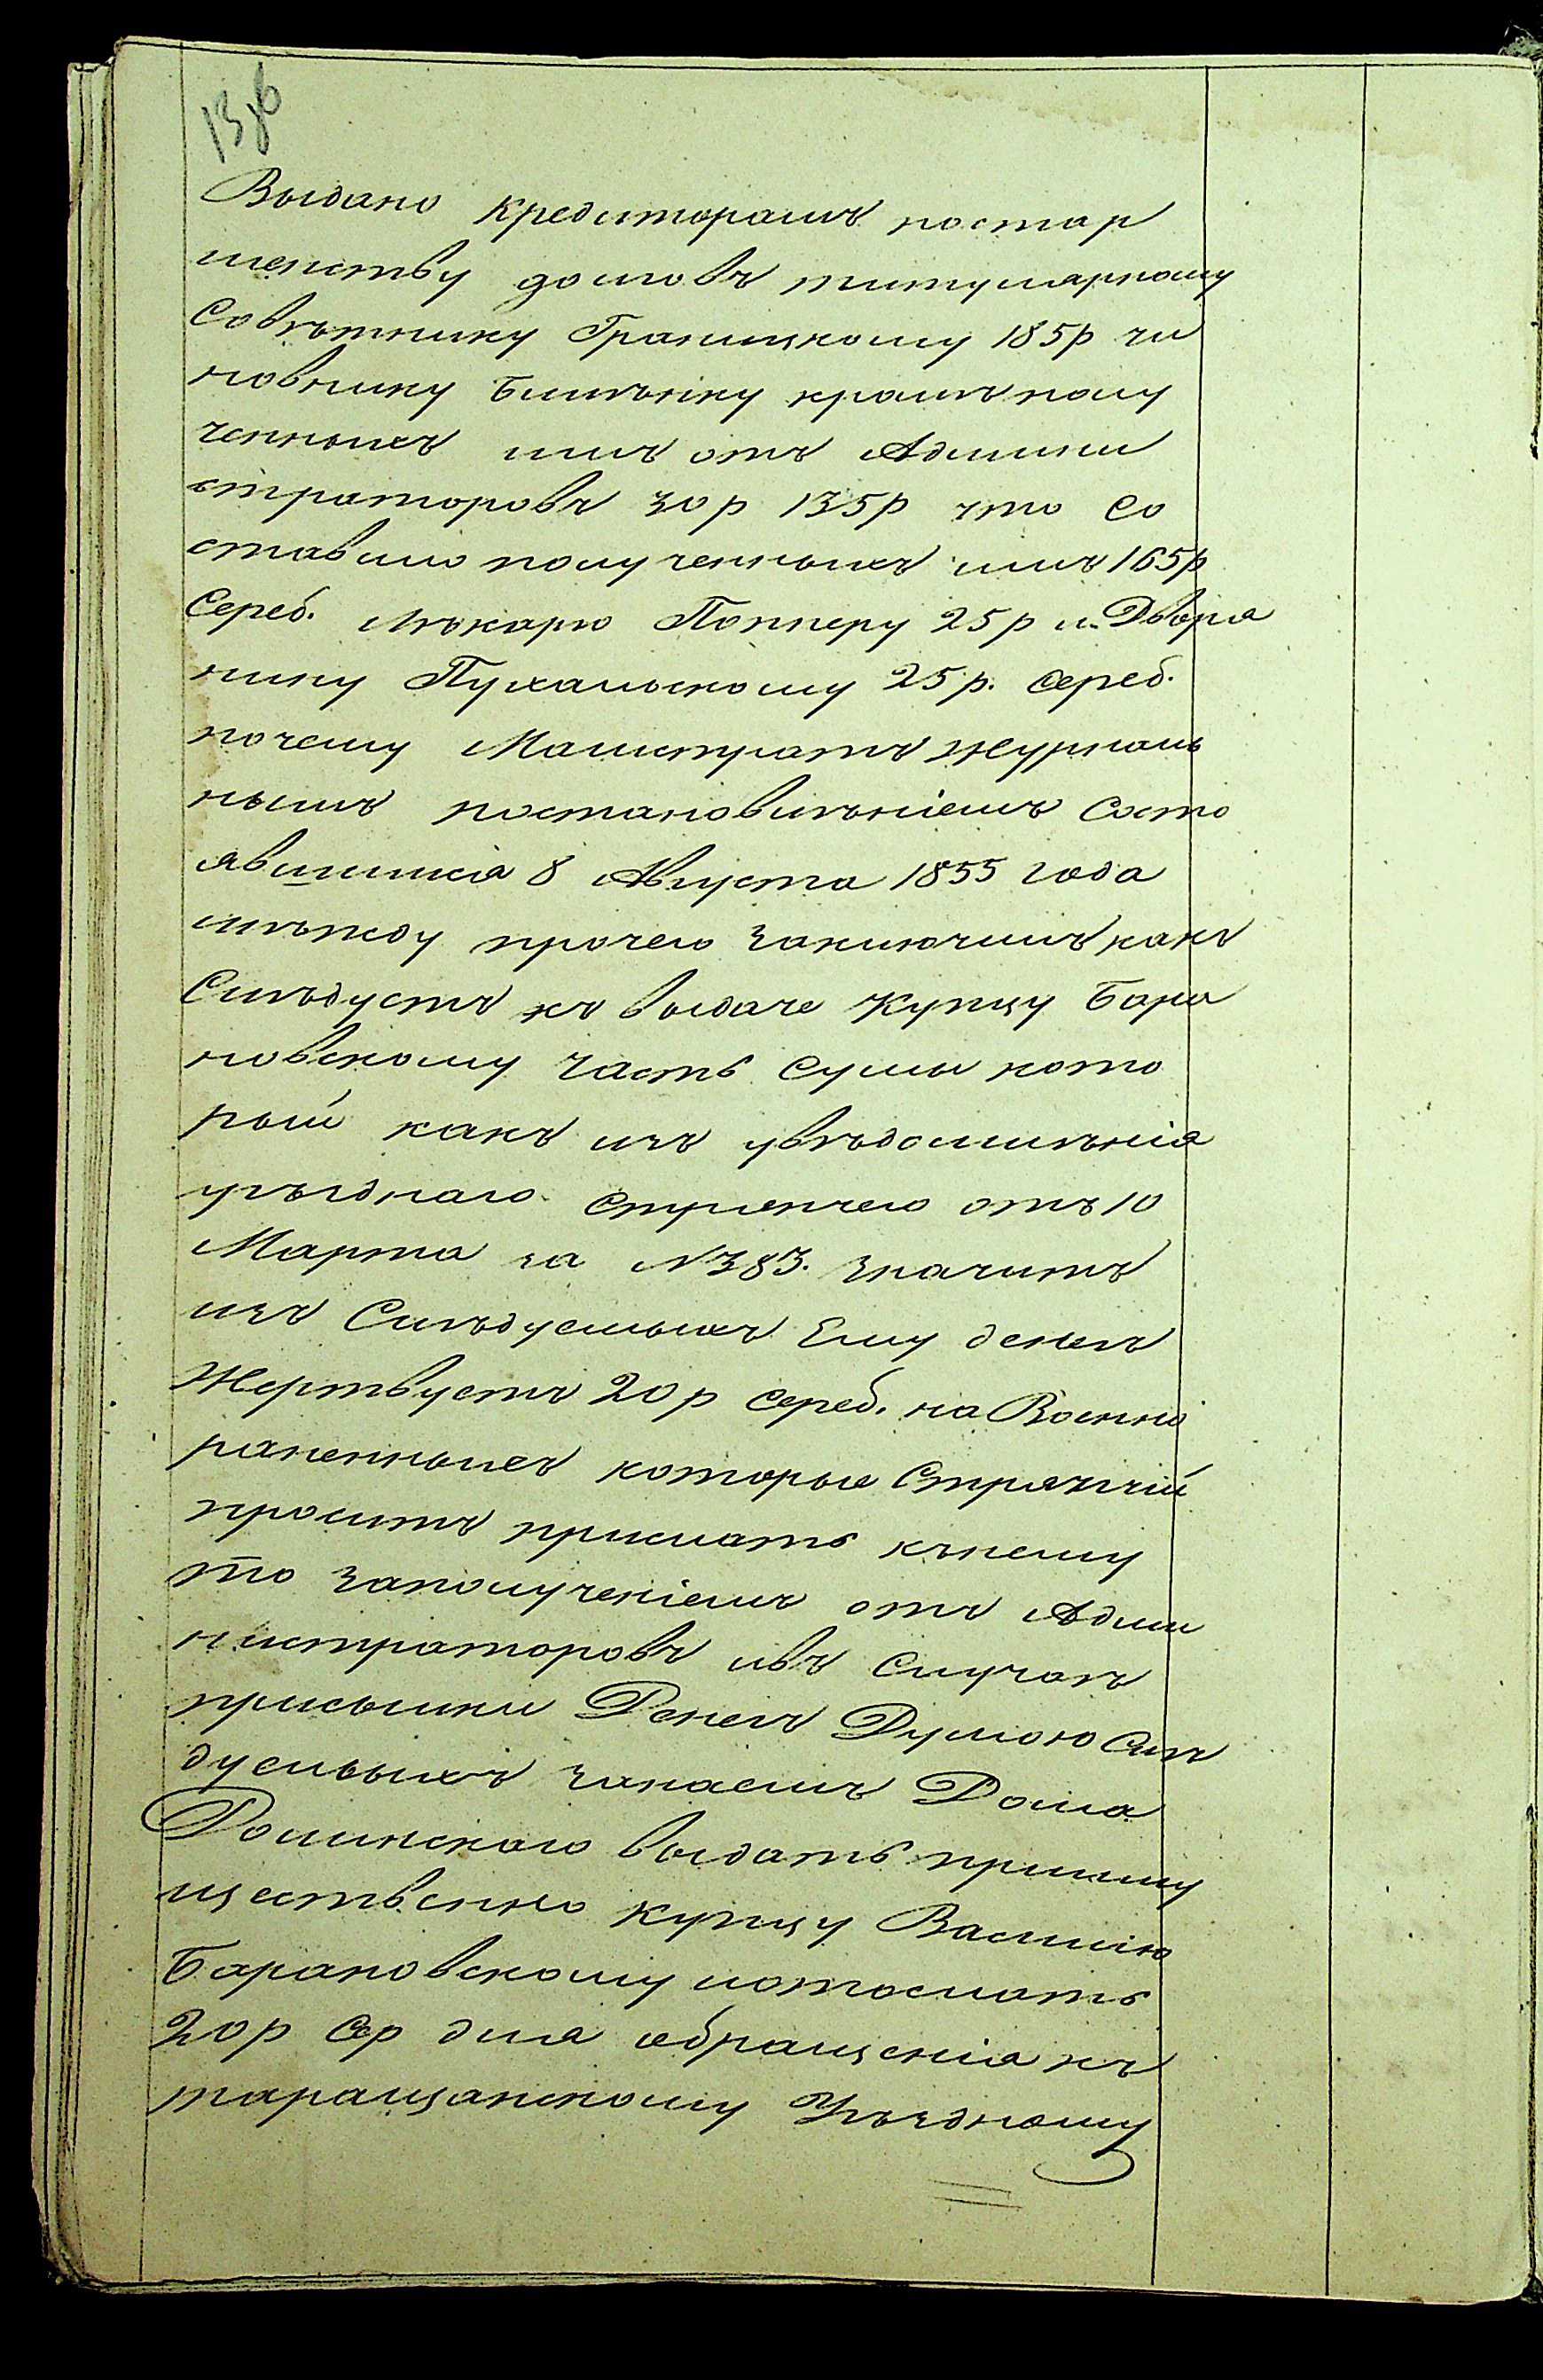 Выдано кредиторамъ постар
шенству долговъ титулярному
Совѣтнику Границкому 185р чи
новнику кромѣ полу
ченныхъ имъ отъ Админи
страторовъ 30р 135р что со
ставило полученныхъ имъ 165р
Сереб. Лѣкарю Попперу 25р и Дворя
нину Пухальскому 25р. сереб.
почему Магистратъ журналь
нымъ постановлѣніемъ состо
явшимся 8 Августа 1855 года
мѣжду прочего заключилъ какъ
Слѣдуетъ къ выдаче купцу Бара
новскому часть сумы кото
рый какъ изъ увѣдомлѣнія
уѣзднаго стряпчего отъ 10
Марта за №383. значитъ
изъ Слѣдуемыхъ Ему денегъ
Жертвуетъ 20р сереб. на Военно
раненныхъ которые Стряпчій
проситъ прислать кънему
то заполученіемъ отъ Адми
нистраторовъ ивъ Случаѣ
присылки Денегъ Думою Слѣ
дуемыхъ занаемъ Дома
Долинскаго выдать прииму
щественно купцу Василію
Барановскому иотослать
20р Сер для обращенія къ
таращанскому Уѣздному